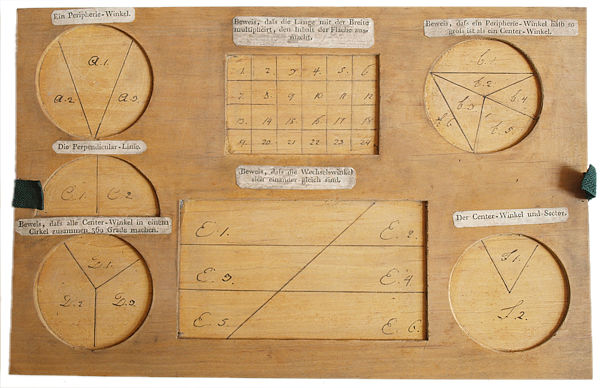 Ein Peripherie-Winkel.
A.1.
A.2
A.3
Beweis, daſs die Länge mit der Breite
multiplicirt, den Inhalt der Fläche aus-
macht.
1. 2. 3 4. 5. 6
7. 8. 9 10 11 12
13. 14 15. 16 17. 18
19 20 21. 22 23. 24
Beweis, daſs ein Peripherie-Winkel halb so
groſs ist als ein Center-Winkel.
b.2
b.3
b.4
b.5
Die Perpendicular-Linie.
C.1 C.2
Beweis, daſs die Wechselwinkel
sich einander gleich sind.
E.1. E.2.
E.3. E.4
E.5 E.6.
Beweis, daſs alle Center-Winkel in einem
Cirkel zusammen 360 Grade machen.
D.1.
D.2. D.3.
Der Center-Winkel und Sector.
F.1.
F.2.